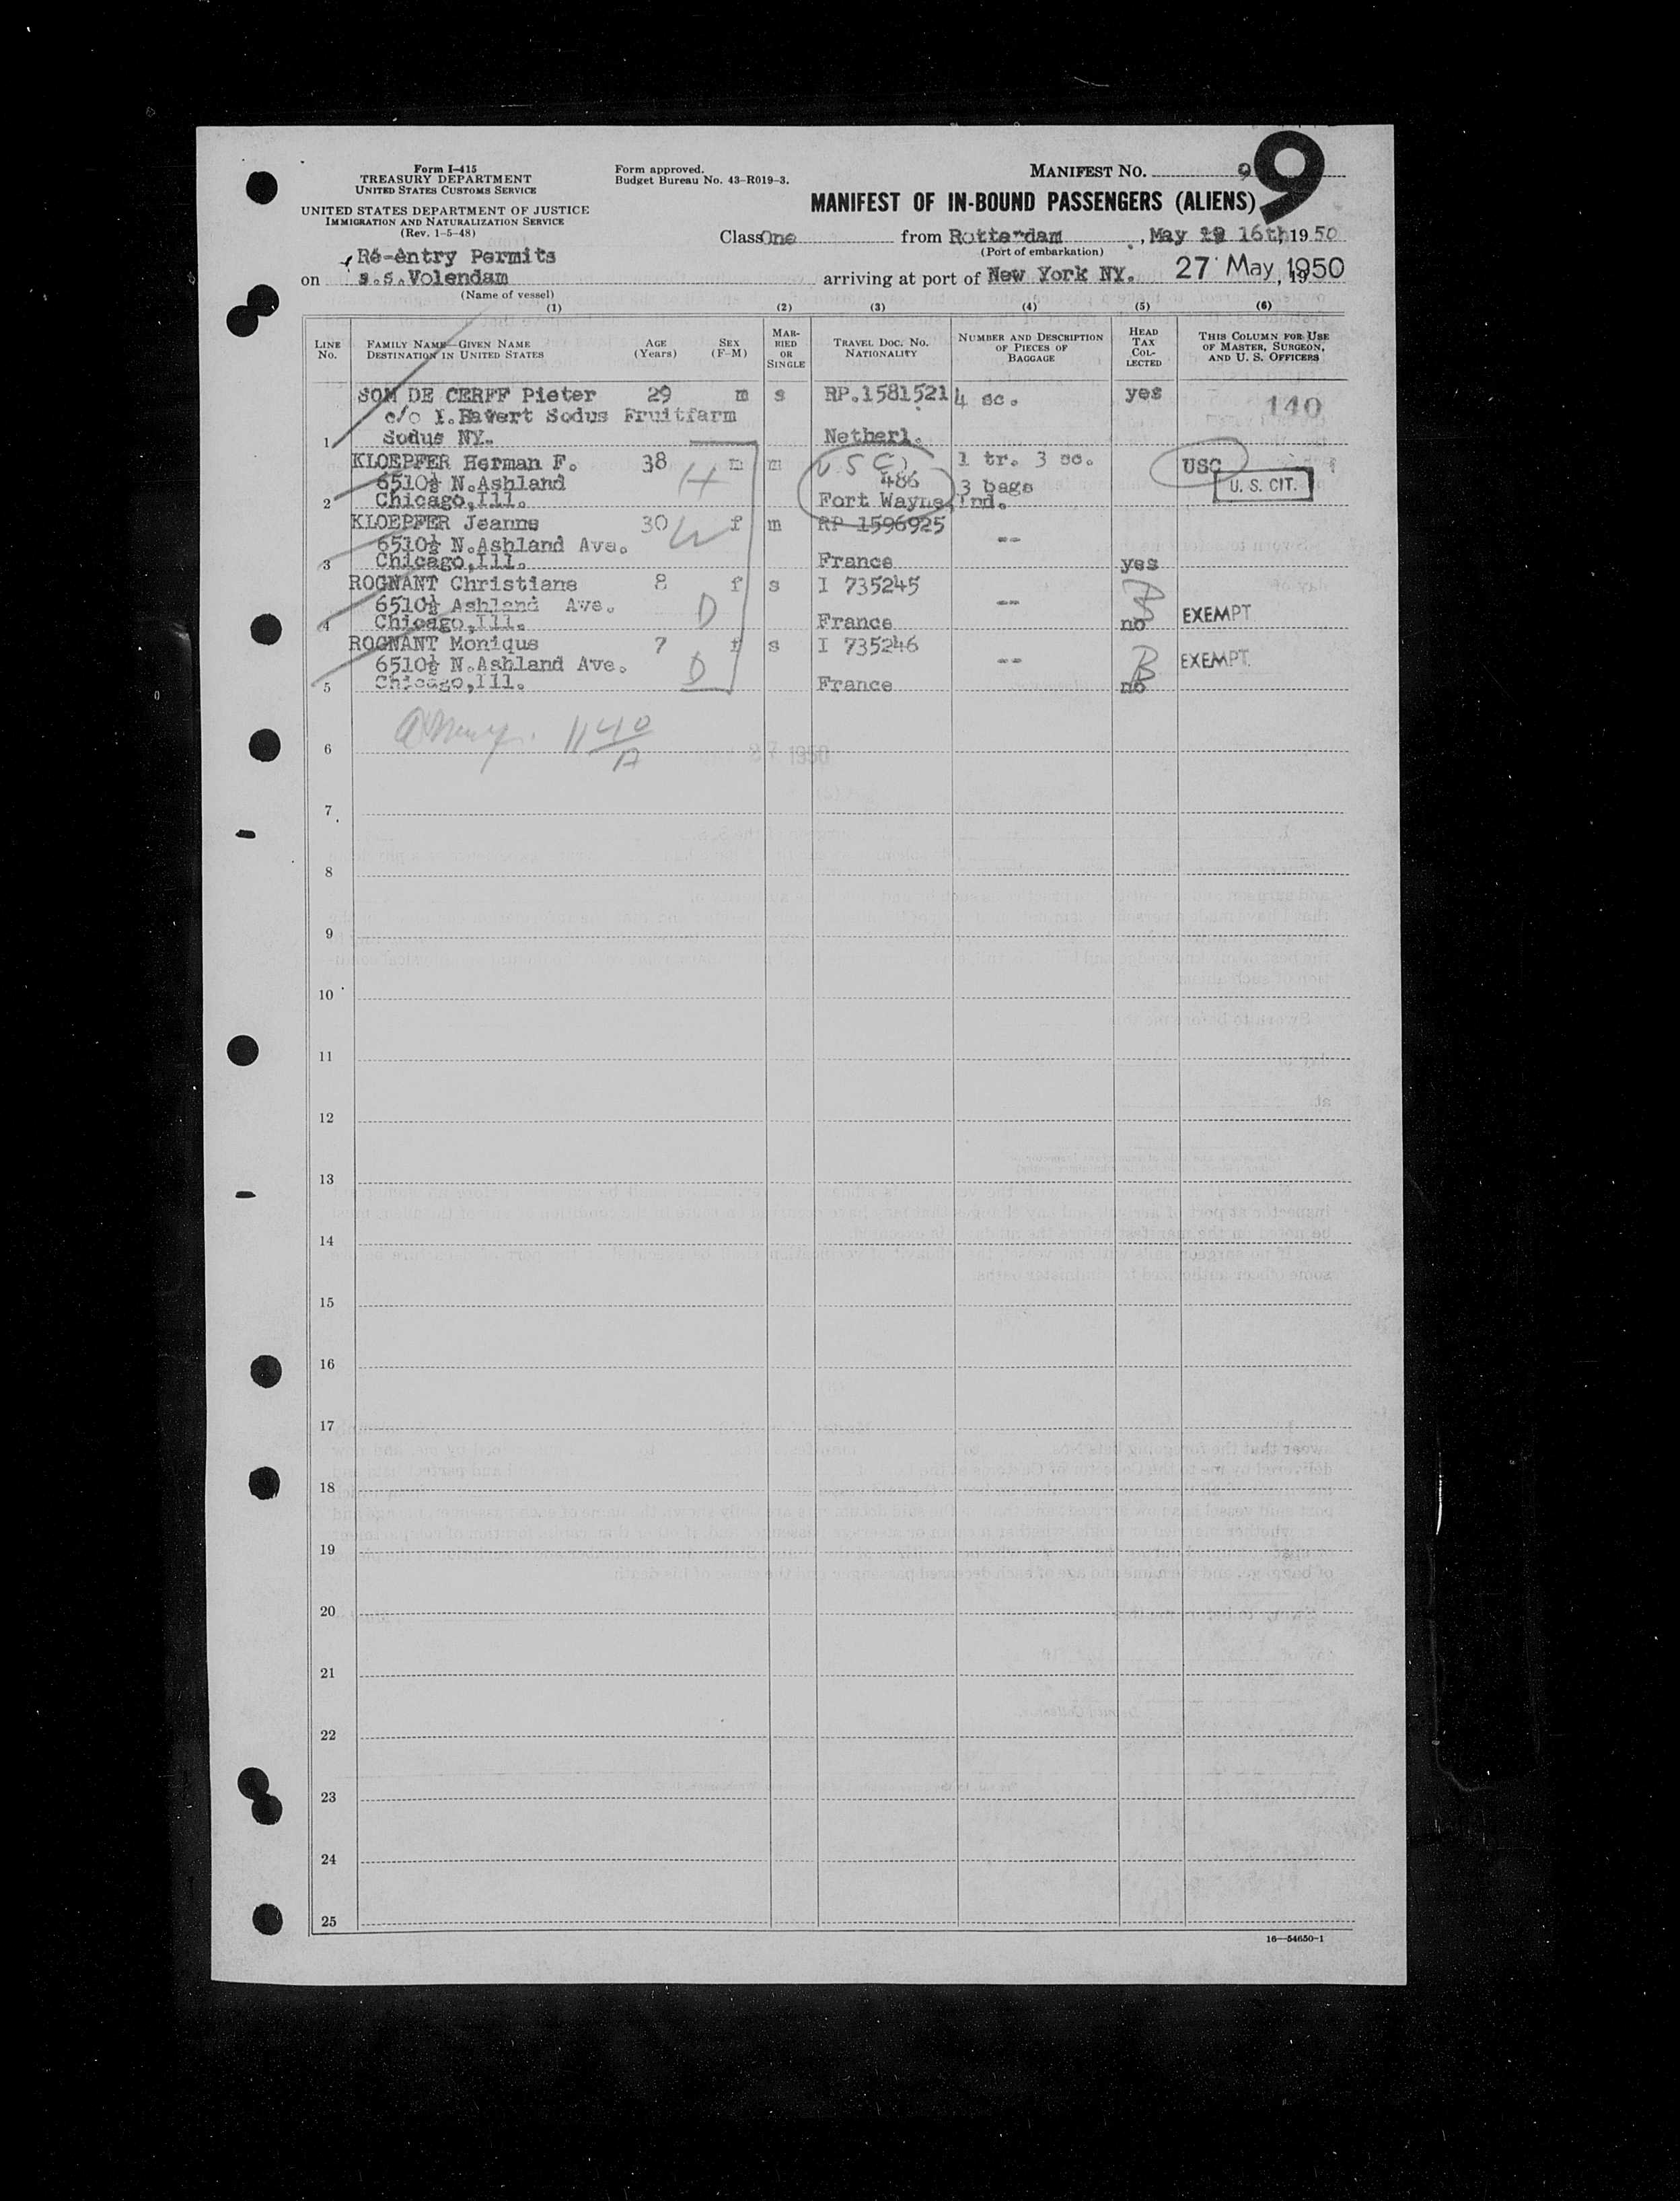 Form I-415
TREASURY DEPARTMENT
UNITED STATES CUSTOMS SERVICE
UNITED STATES DEPARTMENT OF JUSTICE
IMMIGRATION AND NATURALIZATION SERVICE
(Rev. 1-5-48)
Form approved.
Budget Bureau No. 43-R019-3.
MANIFEST NO. 9
9
MANIFEST OF IN-BOUND PASSENGERS (ALIENS)
Class One from Rotterdam, May 16th, 1950
(Port of embarkation)
Re-entry Permits
on s.s. Volendam arriving at port of New York NY. 27 May, 1950
(Name of vessel)
(1) (2) (3) (4) (5) (6)
LINE NO. FAMILY NAME—GIVEN NAME DESTINATION IN UNITED STATES AGE (Years) SEX (F-M) MARRIED OR SINGLE TRAVEL DOC. NO. NATIONALITY NUMBER AND DESCRIPTION OF PIECES OF BAGGAGE HEAD TAX COLLECTED THIS COLUMN FOR USE OF MASTER, SURGEON, AND U. S. OFFICERS
SOM DE CERFF Pieter 29 m s RP.1581521 4 sc. yes 140
c/o I.Bavert Sodus Fruitfarm
1 Sodus NY. Netherl.
KLOEPFER Herman F. 38 H m m U S C 1 tr. 3 sc. USC
6510½ N.Ashland 486 3 bags U. S. CIT.
2 Chicago,Ill. Fort Wayne,Ind.
KLOEPFER Jeanne 30 W f m RP 1596925
6510½ N.Ashland Ave. --
3 Chicago,Ill. France yes
ROGNANT Christiane 8 f s I 735245
6510½ Ashland Ave. D -- EXEMPT
4 Chicago,Ill. France no
ROGNANT Monique 7 f s I 735246
6510½ N.Ashland Ave. D -- B EXEMPT.
5 Chicago,Ill. France no
1140
A
6 27 1950
7
8
9
10
11
12
13
14
15
16
17
18
19
20
21
22
23
24
25
16—54650-1